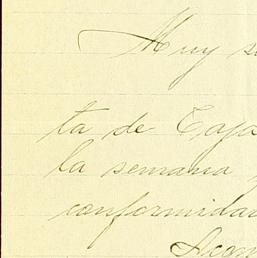 Muy s
ta de Caja
la semana
conformida
Acom